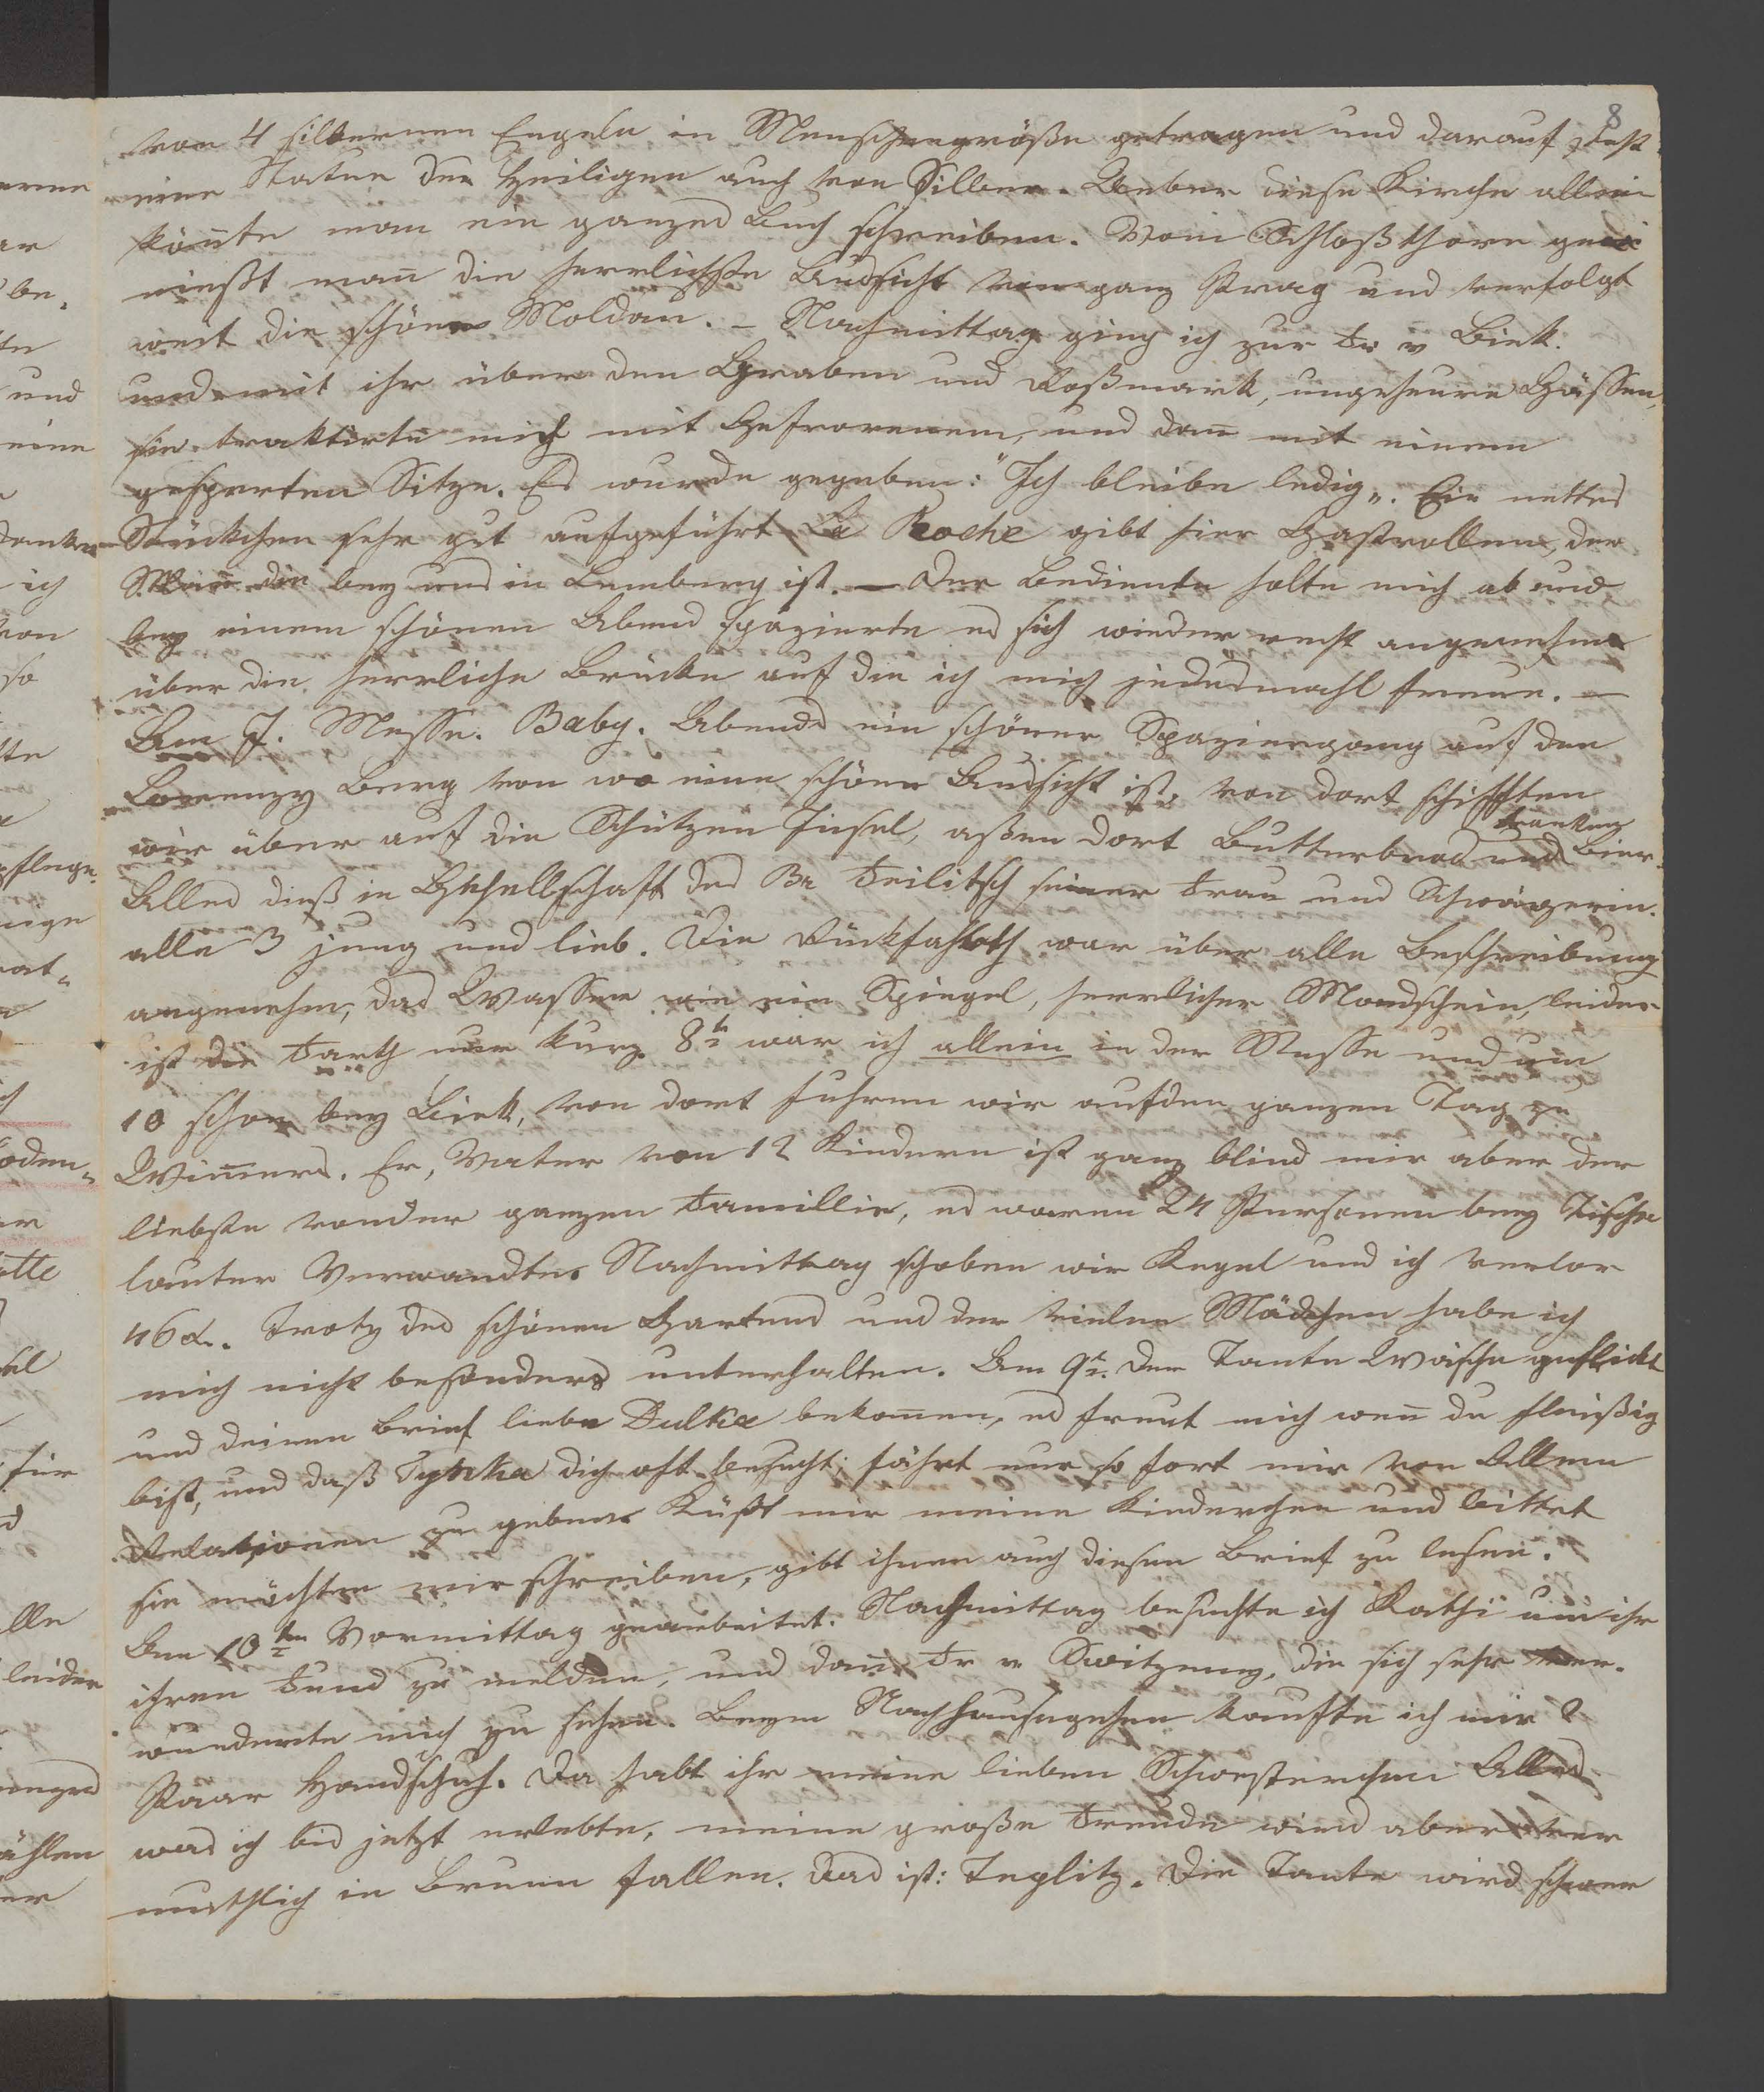 8
von 4 silbernen Engeln in Menschengröße getragen und darauf steht
eine Statue des Heiligen auch von Silber. Ueber diese Kirche allein
kön̄te man ein ganzes Buch schreiben. Vom Schloßthore ge
nießt man̄ die herrlichste Aussicht von ganz Prag und verfolgt
weit die schöne Moldau. – Nachmittag ging ich zur Fr v Biek.
und mit ihr über den Graben und Roßmark, ungeheure Gässen,
sie traktirte mich mit Gefrorenem, und dan̄ mit einem
gesperten Sitze. Es wurde gegeben: "Ich bleibe ledig„. Ein nettes
Stückchen sehr gut aufgeführt La Roche gibt hier Gastrollen, der
Man̄ der bey uns in Lemberg ist. — Der Bediente holte mich ab und
bey einem schönen Abend spazierte es sich wieder recht angenehm
über die herrliche Brücke auf die ich mich jedesmahl freue. —
Am 7. Messe. Baby. Abends ein schöner Spaziergang auf den
Lorenzy Berg von wo eine schöne Aussicht ist, von dort schifften
wir über auf die Schützen Insel, aßen dort Butterbrod und tranken Bier.
Alles dieß in Gesellschaft des Br Feilitsch seiner Frau und Schwägerin.
alle 3 jung und lieb. Die Rückfahrth war über alle Beschreibung
angenehm, das Wasser wie ein Spiegel, herrlicher Mondschein, leider
ist die Farth nur kurz. 8t war ich allein in der Messe und um
10 schon bey Biek, von dort fuhren wir auf den ganzen Tag zu
Wim̄ers. Er, Vater von 12 Kindern ist ganz blind mir aber der
liebste von der ganzen Famillie, es waren 24 Personen bey Tische
lauter Verwandte. Nachmittag schoben wir Kegel und ich verlor
46x. Trotz des schönen Gartens und der vielen Mädchen habe ich
mich nicht besonders unterhalten. Am 9t. der Tante Wäsche geflickt
und deinen Brief liebe Dulka bekom̄en, es freut mich wen̄ du fleißig
bist, und daß Tynka dich oft besucht; fährt nur so fort mir von Allem
Relationen zu geben. Küßt mir meine Kinderchen und bittet
sie möchten mir schreiben, gibt ihnen auch diesen Brief zu lesen.
Am 10ten Vormittag gearbeitet. Nachmittag besuchte ich Kathi um ihr
ihren Fund zu melden, und dan̄ Fr v Switzeny, die sich sehr ver-
wunderte mich zu sehen. Beym Nachhausegehen kaufte ich mir 2
Paar Handschuh. Da habt ihr meine lieben Schwesterchen Alles
was ich bis jetzt erlebte, meine große Freude wird aber ver
muthlich in Brunn fallen. das ist: Teplitz. Die Tante wird schwer